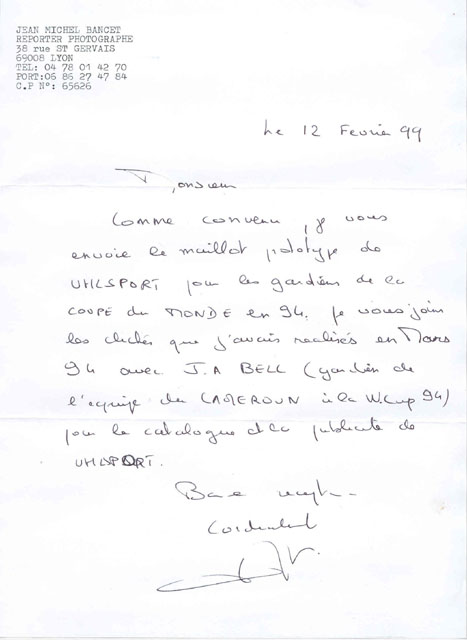 JEAN MICHEL BANCET
REPORTER PHOTOGRAPHE
38 rue ST GERVAIS
69008 LYON
TEL: 04 78 01 42 70
PORT:06 86 27 47 84
C.P N°: 65626
Le 12 Fevrier 99
Monsieur
Comme convenu, je vous
envoie le maillot prototype de
UHLSPORT pour les gardiens de la
COUPE du MONDE en 94. je vous joins
les clichés que j'avais realisés en Mars
94 avec J.A BELL (gardien de
l'equipe du CAMEROUN à la W.Cup 94)
pour le catalogue et la publicité de
UHLSPORT.
Bonne
Cordialement